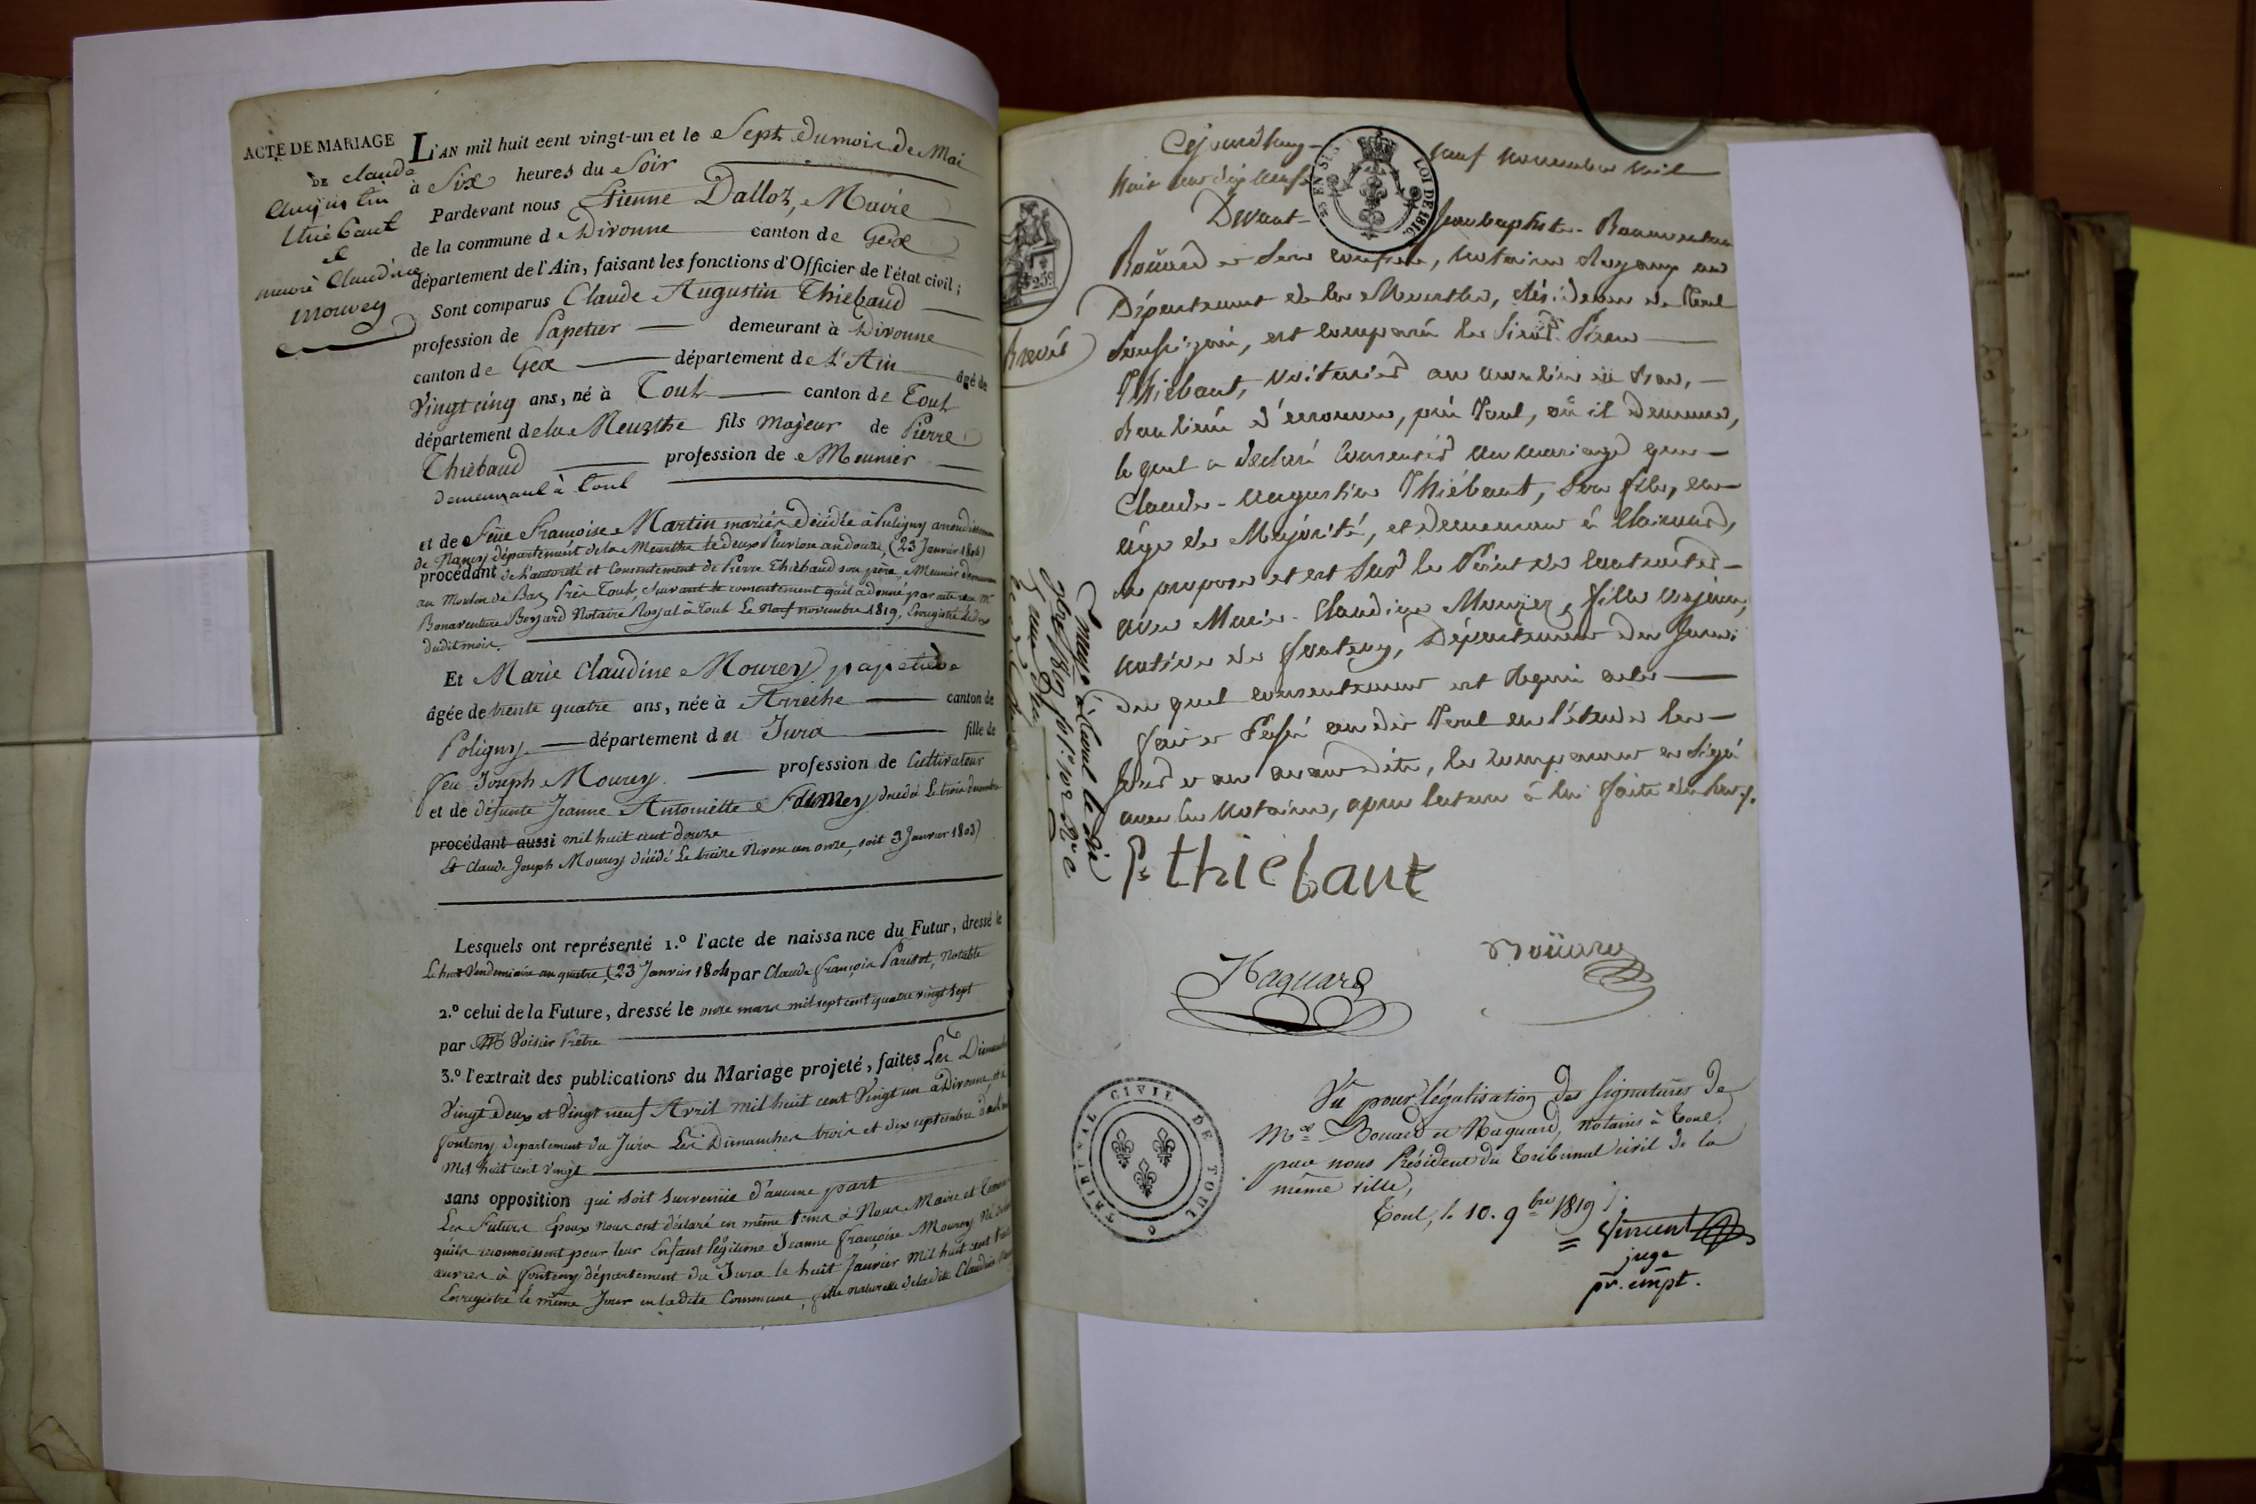 ACTE DE MARIAGE
DE Claude
Augustin
thiebaut
&
marie Claudine
mourey
L'AN mil huit cent vingt-un et le Sept du mois de Mai
à Six heures du Soir
Pardevant nous Etienne Dalloz, Maire
de la commune de Divonne canton de Gex
département de l'Ain, faisant les fonctions d'Officier de l'état civil;
Sont comparus Claude Augustin Thiebaud
profession de Papetier demeurant à Divonne
canton de Gex département de L'Ain âgé de
Vingt cinq ans, né à Toul canton de Toul
département de la Meurthe fils majeur de Pierre
Thiébaud profession de Meunier
demeurant à Toul
et de Feüe Françoise Martin mariés décédée à Puligny arrondissement
de Nancy département de la Meurthe le deux Pluviose an douze, (23 Janvier 1804)
procédant de l'autorité et Consentement de Pierre Thiébaud son père, Meunier demeurant
au Moulin de Bas Près Toul, Suivant le consentement qu'il a donné par acte reçu Me
Bonaventure Boyard Notaire Royal à Toul Le Neuf novembre 1819, Enregistré le dix
dudit mois.
Et Marie Claudine Mourey papetière
âgée de trente quatre ans, née à Arreche canton de
Poligny département du Jura fille de
feu Joseph Mourey profession de Cultivateur
et de défunte Jeanne Antoinette décédée Le trois décembre
procédant aussi mil huit cent douze
Et Claude Joseph Mourey décédé Le treize Nivose an onze, soit 3 Janvier 1803)
Lesquels ont représenté 1.º l'acte de naissance du Futur, dressé le
Le huit Vendemiaire an quatre, (23 Janvier 1804 par Claude françois Parisot, Notable
2.º celui de la Future, dressé le onze mars mil sept cent quatre vingt sept
par Mr Voisier Prêtre
3.º l'extrait des publications du Mariage projeté, faites Les Dimanches
Vingt Deux et Vingt neuf Avril mil huit cent Vingt un à Divonne, et à
fonteny departement du Jura Les Dimanches trois et dix septembre
Mil huit cent vingt
sans opposition qui soit survenüe d'aucune part
Les Futurs Epoux nous ont déclaré en même tems à Nous Maire et Temoins
qu'ils reconnoissent pour leur Enfant légitime Jeanne françoise Mourey Né
à fonteny département du Jura le huit Janvier Mil huit cent
Enregistré le même Jour en ladite Commune, fille naturelle de ladite Claudine
Cejourd'huy neuf novembre mil
huit cent dix neuf
Devant Jean baptiste Bonaventure
Boüard et Son confrère, notaires Royaux au
Département de la Meurthe, résidens à Toul
Soussignés, est comparu le Sieur Pierre
Thiébaut, voiturier au moulin de bas,
banlieue d'ecrouves, près Toul, où il demeure,
lequel a déclaré Consentir au mariage que
Claude-Augustin Thiébaut, Son fils, en
âge de Majorité, et demeurant à Clairvaux,
se propose et est Sur le Point de contracter
avec Marie Claudine Mourey, fille majeure,
native de fonteny, Département du Jura
du quel consentement est Requis acte
fait et Passé audit Toul en l'étude les
jour et an avant dits, le comparant a signé
avec les Notaires, après lecture à lui faite
LOI DE 1816.
25c
Brevet
Enregé à Toul le dix
9bre 1819
P thiebaut
Haquard
Boüard
TRIBUNAL CIVIL DE TOUL
Vu pour légalisation des signatures de
Mes Bouard et Haquard, notaires à Toul,
par nous Président du Tribunal civil de la
même ville,
Toul, le 10. 9bre 1819
Vincent
juge
pr. empt.